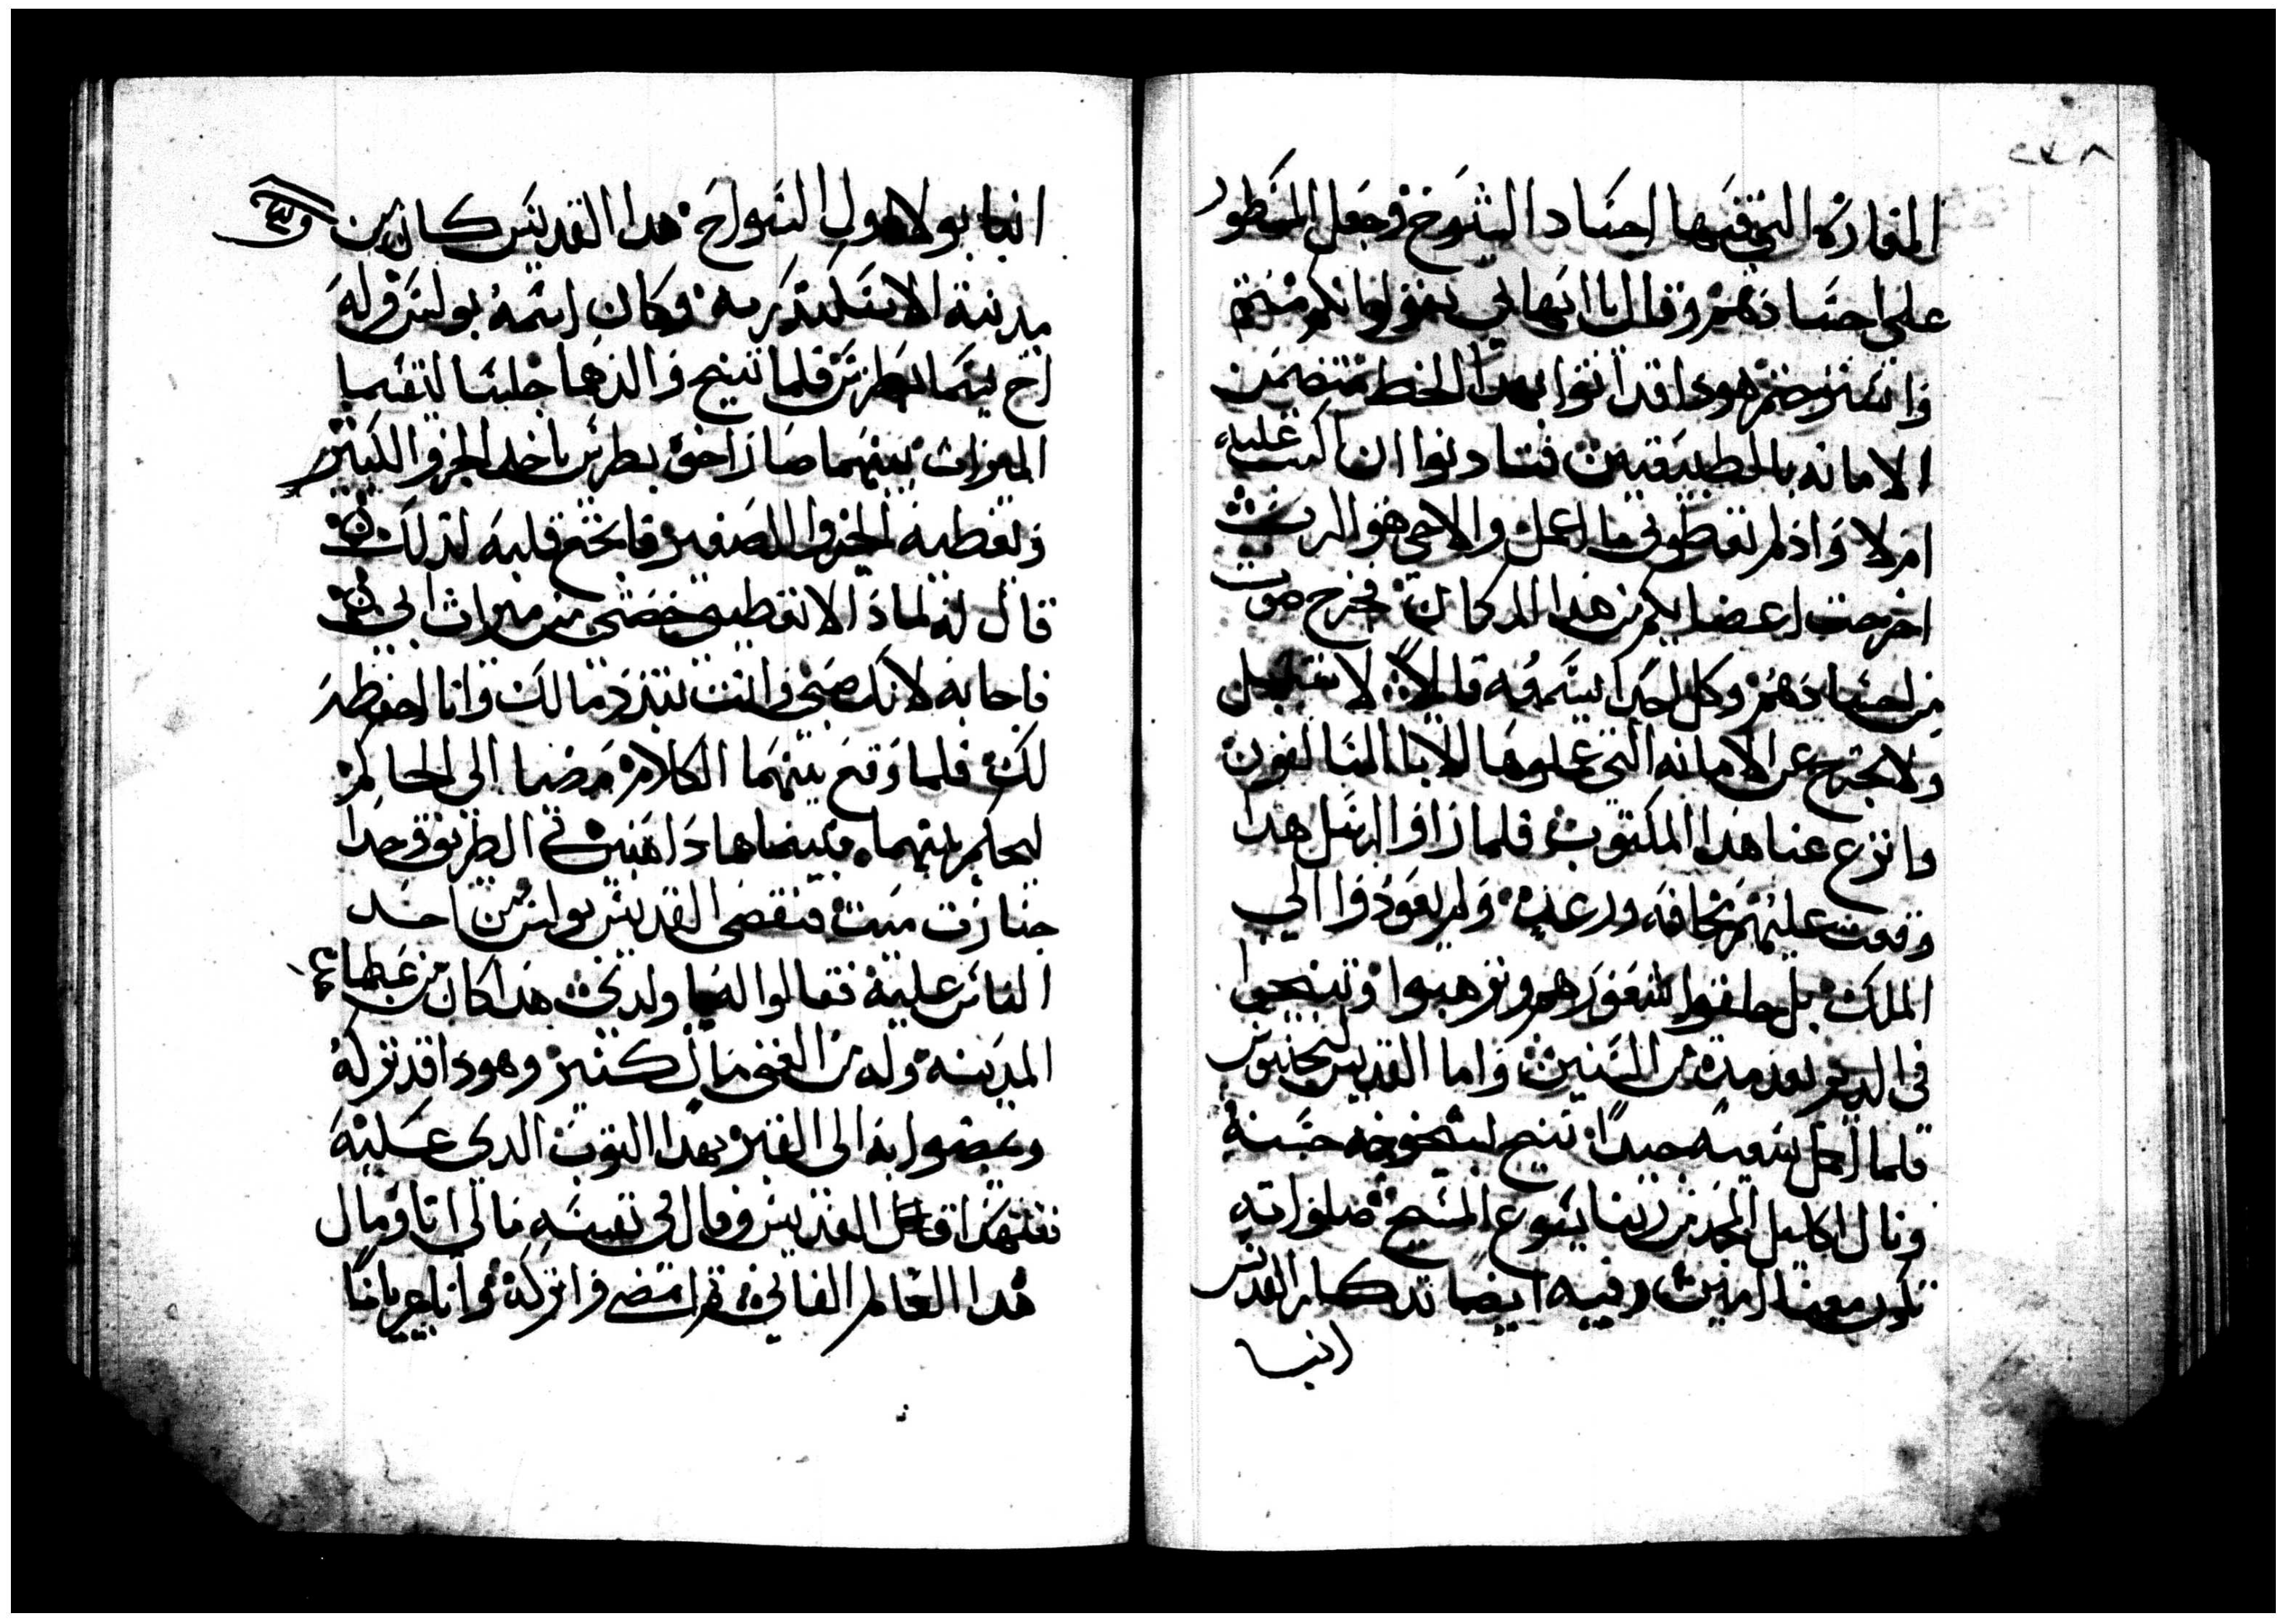 ٢٧٨
المغاره التي فيها اجساد الشيوخ وجعل المسطور
على اجسادهم وقال يا ابهاتي تقولوا انكم متتم
وانتم هودا قد اتوا بهدا الخط متضمن
الامانه بالطبيعتين فتادنوا ان اكتب عليه
ام لا واذ لم تعطوني ما اعمل والاحي هو الرب
اخرجت اعضايكم من هدا المكان فخرج صوت
من اجسادهم وكل احد يسمعه قايلا لا تفعل
ولا تخرج عن الامانه التي عملوها الابا السالفون
وانزع عنا هدا المكتوب فلما راوا الرسل هدا
وقعت عليهم مخافه ورعده ولم يعودوا الي
الملك بل حلقوا شعورهم وترهبوا وتنيحوا
في الدير بعد مدة من السنين واما القديس
فلما اكمل سعيه جيدا تنيح بشيخوخه حسنه
ونال اكليل المجد من ربنا يسوع المسيح صلواته
تكون معنا امين وفيه ايضا تدكار القديس
انبا
انبا بولا اول السواح هدا القديس كان من
مدينة الاسكندريه وكان اسمه بولس وله
اخ يسما بطرس فلما تنيح والدهما جلسا لتقسيما
الميرات بينهما صار اخوه بطرس ياخد الجزو الكبير
وتعطيه الجزوا الصغير فانجع قلبه لدلك
قال له لمادا لا تعطيني حصتي من ميرات ابي
فاجابه لانك صبي وانت تبدد مالك وانا احفظه
لك فلما وقع بينهما الكلام مضيا الى الحاكم
ليحكم بينهما فبينما هما داهبين في الطريق وجدا
جنازت ميت فتقصى القديس بولس من احد
الناس عليه فقالوا له يا ولدي هدا كان من عظماء
المدينه وله من الغنى مال كتير وهودا قد تركه
ويمضوا به الى القبر بهدا التوب الدي عليه
فتنهد القديس وقال في نفسه مالي انا ومال
هدا العالم الفاني امضي واتركه وانا عريانا